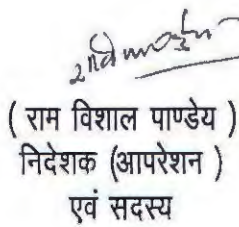 ( राम विशाल पाण्डेय )
निदेशक (आपरेशन )
एवं सदस्य